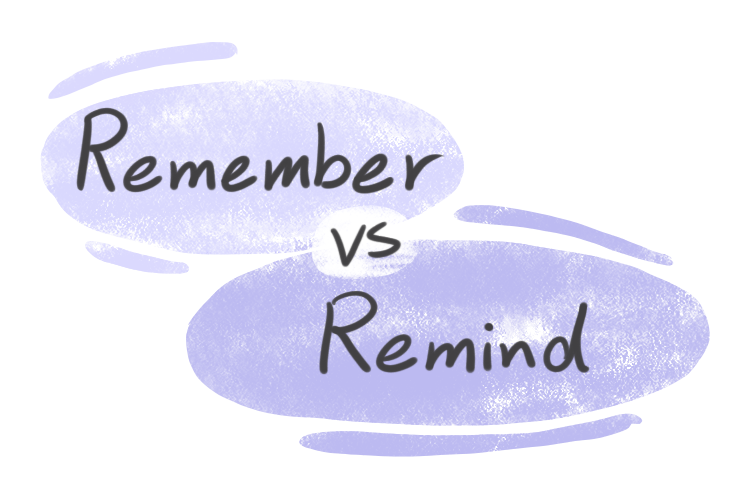 Remember
vs
Remind